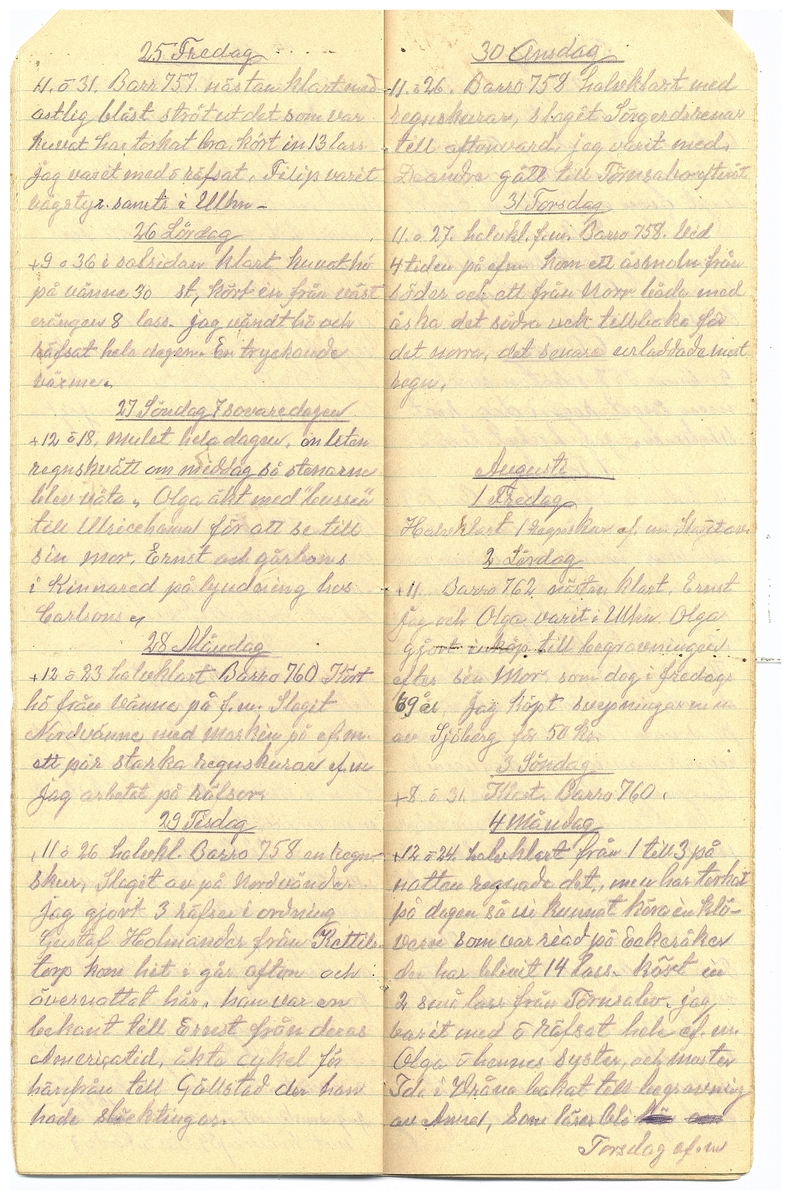 25 Fredag
11. ö 31. Barr 757. nästan klart med
ostlig blåst strött ut det som var
kuvat har torkat bra, kört in 13 lass
jag varit med ö räfsat, Filip varit
vägstyr. samts i Ulhn -
26 Lördag
+9 ö 36 i solsidan klart kuvat hö
på vänne 30 st, kört in från väst
erängen 8 lass. jag vändt hö och
räfsat hela dagen. En tryckande
värme.
27 Söndag 7 sovaredagen
+12 ö 18, mulet hela dagen, en liten
regnskvätt om middag så stenarne
blev våta, Olga åkt med
till Ulricehamn för att se till
sin mor, Ernst och gårbons
i Kinnared på bjudning hos
Carlsons
28 Måndag
+12 ö 23 halvklart Barro 760 Kört
hö från vänne på f.m. Slagit
Nordvänne med maskin på ef.m.
ett par starka regnskurar ef.m
jag arbetat på
29 Tisdag
11 ö 26 halvkl. Barro 758 en regn-
skur, Slaget av på Nordvänder
jag gjort 3 räfser i ordning
Gustaf Holmander från Kettils-
torp kom hit i går afton och
övernattat här, han var en
bekant till Ernst från deras
Americatid, åkte cykel för
härifrån till Gällstad der han
hade släcktingar.
30 Onsdag
11. ö 26. Barro 758 halvklart med
regnskurar, slaget
till aftonvard, jag varit med,
Leander gått till
31 Torsdag
11. ö. 27. halvkl. f.m. Barro 758. Vid
4 tiden på efm. kom ett åskmoln från
Söder och ett från Norr båda med
åska det södra vek tillbaka för
det norra, det senare urladdade mest
regn.
Augusti
1 Fredag
Halvklart 1 regnskur ef. m,
2 Lördag
+11. Barro 762 nästan klart, Ernst
jag och Olga varit i Ulhn. Olga
gjort inköp till begravningen
efter sin Mor som dog i fredags
69 år jag köpt
av Sjöberg för 50 kr.
3 Söndag
+8. ö 31. Klart. Barro 760.
4 Måndag
+12 ö 24. halvklart från 1 till 3 på
natten regnade det, men har torkat
på dagen så vi kunnat köra in klö-
vern som var på
der har blivit 14 lass. köst in
2 små lass från jag
varit med ö räfsat hele ef. m.
Olga ö hennes syster, och moster
Ida i bakat till begravning
av Anna, som
Torsdag ef. m